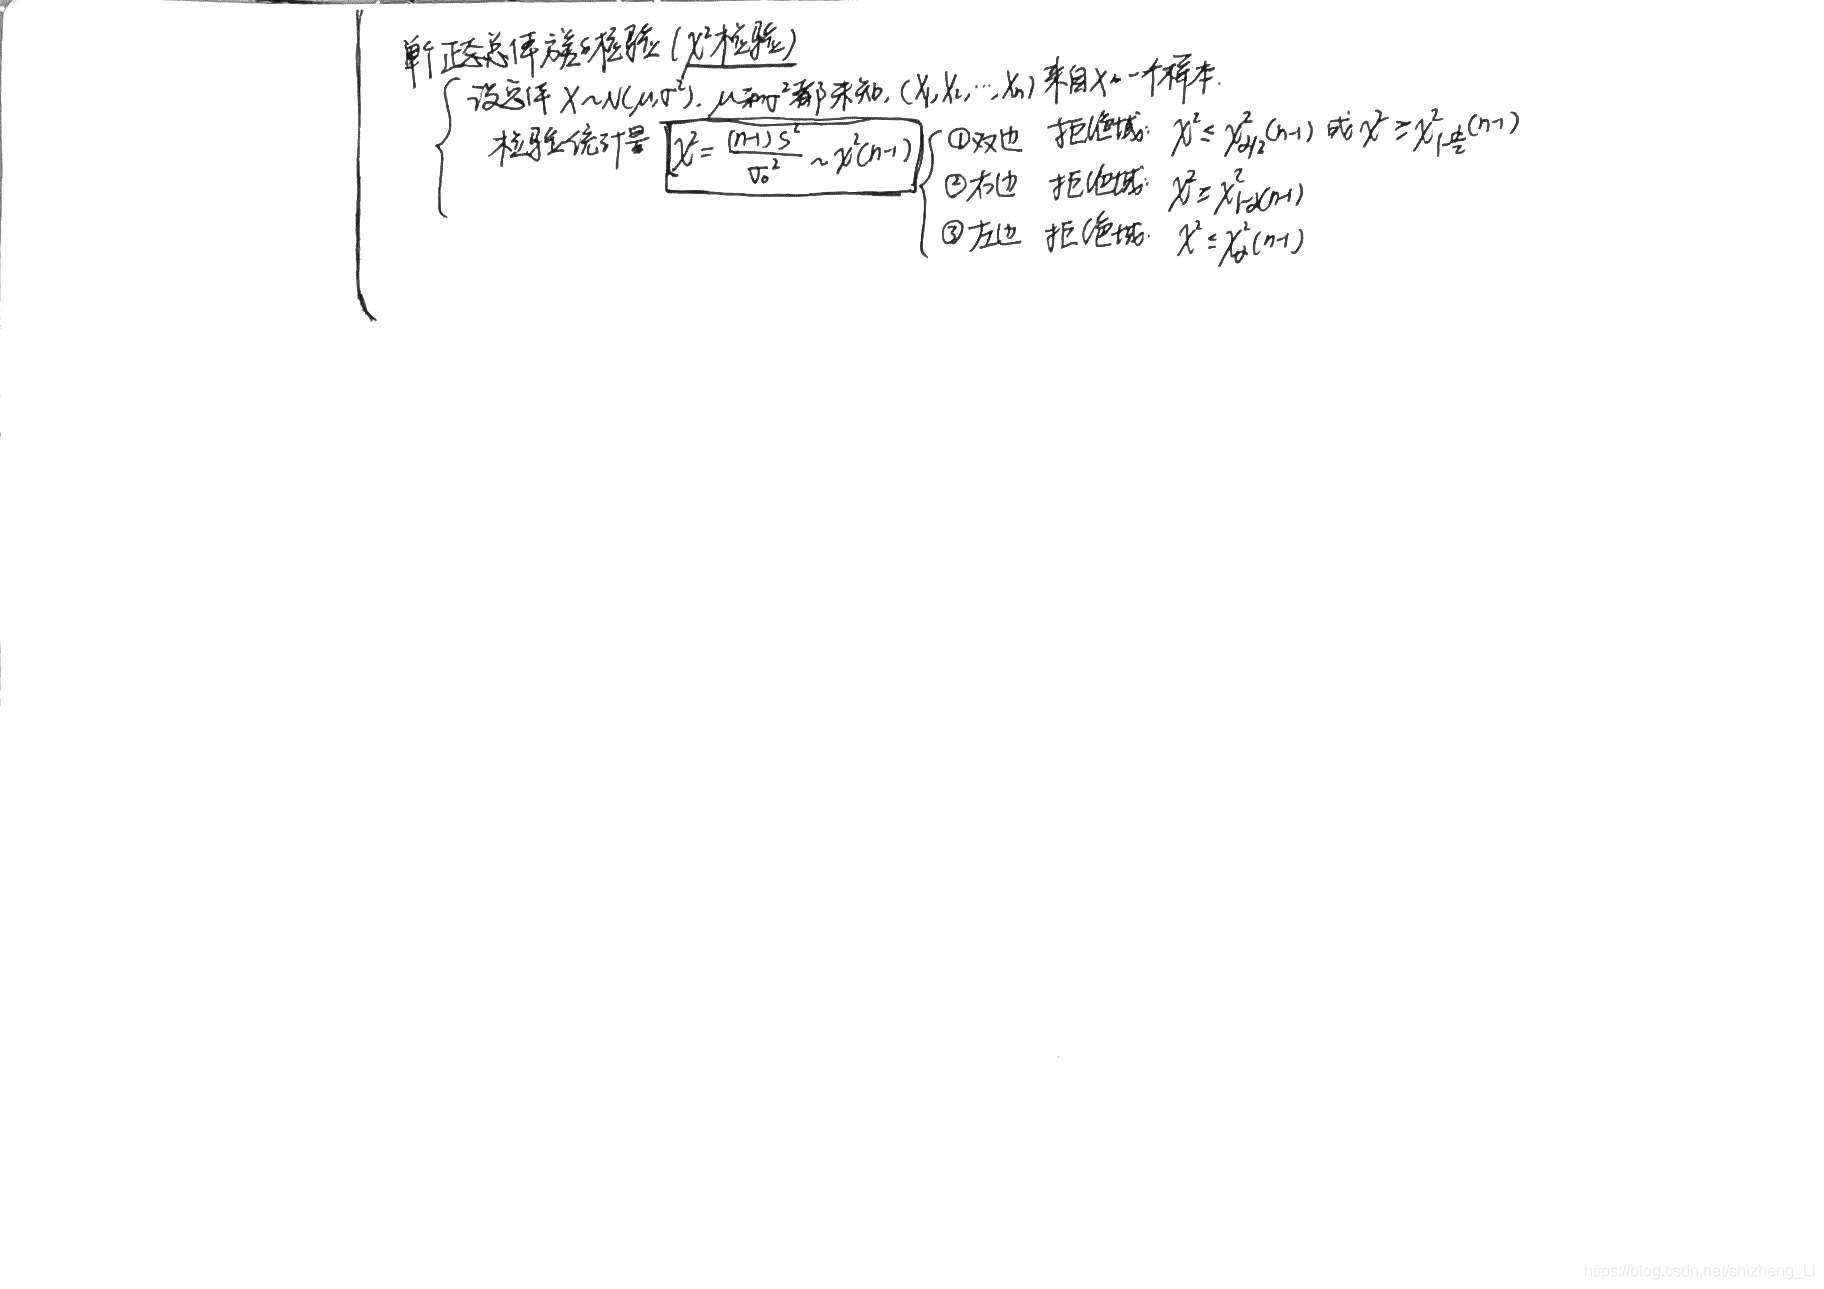 单个正态总体方差的检验 (χ²检验)
设总体 X~N(μ,σ²). μ和σ²都未知, (X₁,X₂,…,Xₙ) 来自X的一个样本.
检验统计量 χ² = (n-1)S²/σ₀² ~ χ²(n-1)
①双边 拒绝域: χ² ≤ χ²_{α/2}(n-1) 或 χ² ≥ χ²_{1-α/2}(n-1)
②右边 拒绝域: χ² ≥ χ²_{1-α}(n-1)
③左边 拒绝域: χ² ≤ χ²_α(n-1)
https://blog.csdn.net/shizheng_Li